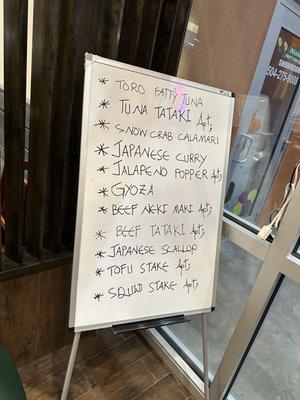 * TORO FATTY TUNA
* TUNA TATAKI Apt;
* SNOW CRAB CALAMARI
* JAPANESE CURRY
* JALAPENO POPPER Apt;
* GYOZA
* BEEF NEKI MAKI Apt;
* BEEF TATAKI Apt;
* JAPANESE SCALLOP
* TOFU STAKE Apt;
* SQUID STAKE Apt;
504-275-